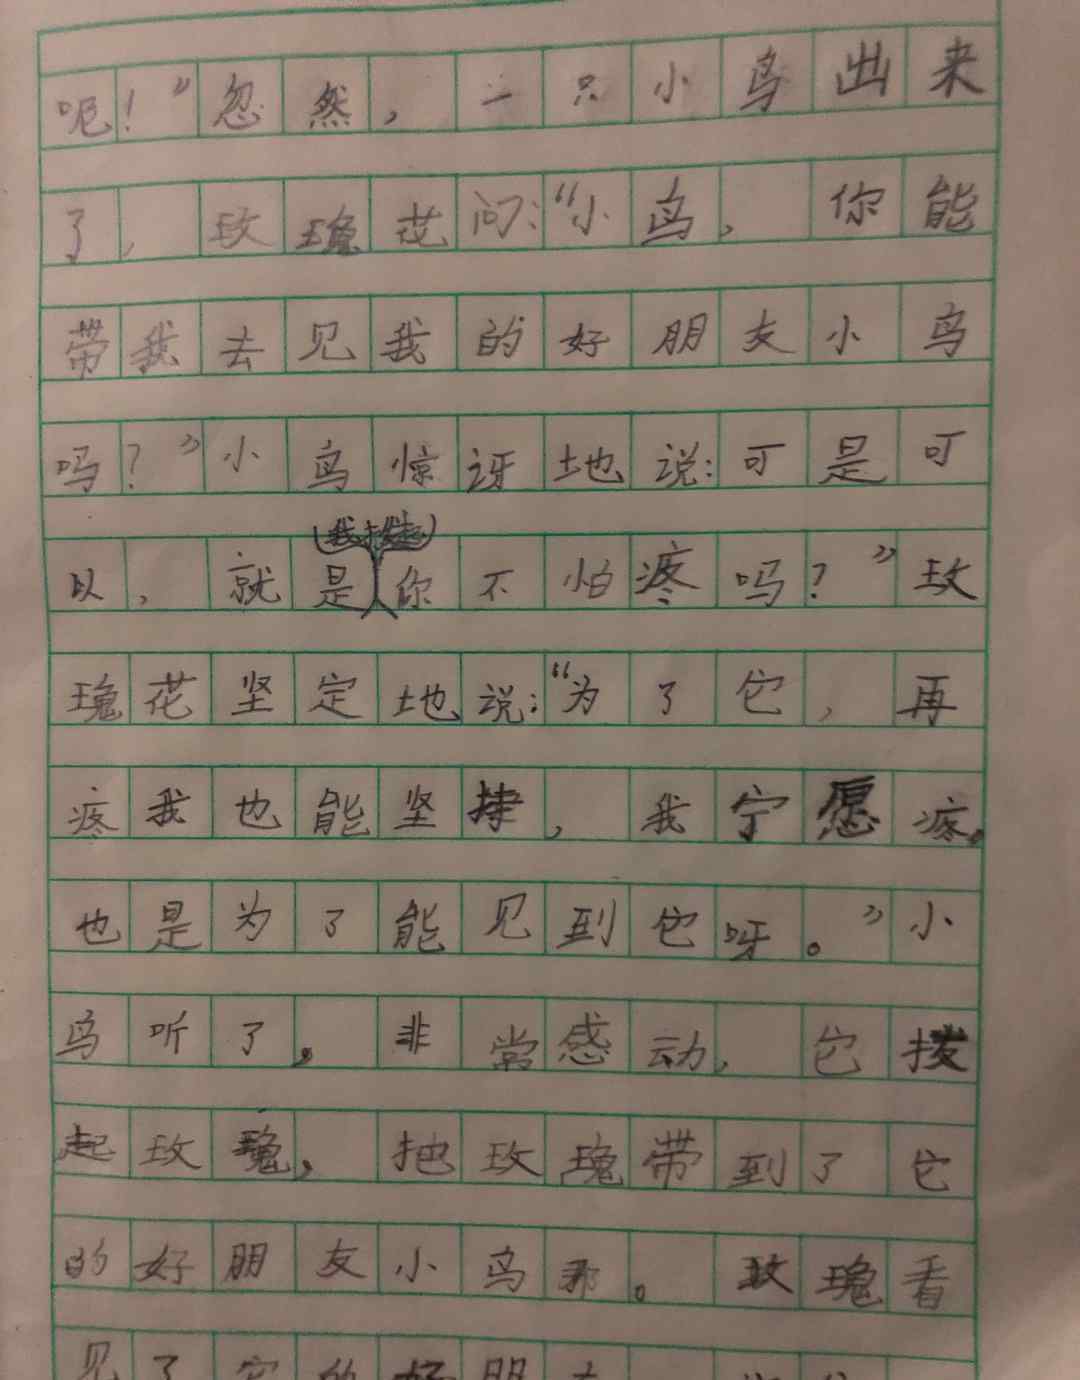 呢！”忽然，一只小鸟出来
了，玫瑰花问：“小鸟，你能
带我去见我的好朋友小鸟
吗？”小鸟惊讶地说：可是可
(我拔起)
以，就是你不怕疼吗？”玫
瑰花坚定地说：“为了它，再
疼我也能坚持，我宁愿疼，
也是为了能见到它呀。”小
鸟听了，非常感动，它拔
起玫瑰，把玫瑰带到了它
的好朋友小鸟那。玫瑰看
见了它的好朋友